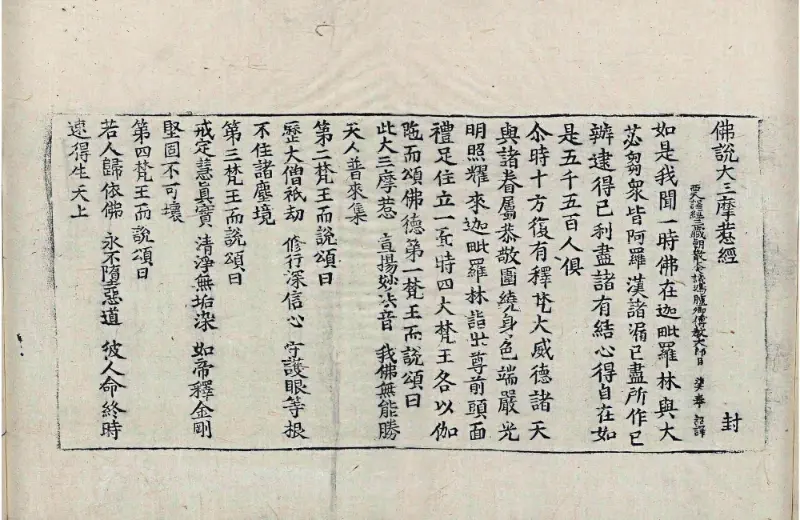 佛說大三摩惹經 一 封
西天譯經三藏朝散大夫試鴻臚卿傳教大師臣 奉 詔譯
如是我聞一時佛在迦毗羅林與大
苾芻眾皆阿羅漢諸漏已盡所作已
辦逮得己利盡諸有結心得自在如
是五千五百人俱
尒時十方復有釋梵大威德諸天
與諸眷屬恭敬圍繞身色端嚴光
明照耀來迦毗羅林詣世尊前頭面
禮足住立一面時四大梵王各以伽
陁而頌佛德第一梵王而說頌曰
此大三摩惹 宣揚妙法音 我佛無能勝
天人普來集
第二梵王而說頌曰
歷大僧祇劫 修行深信心 守護眼等根
不住諸塵境
第三梵王而說頌曰
戒定慧真實 清淨無垢染 如帝釋金剛
堅固不可壞
第四梵王而說頌曰
若人歸依佛 永不墮惡道 彼人命終時
速得生天上